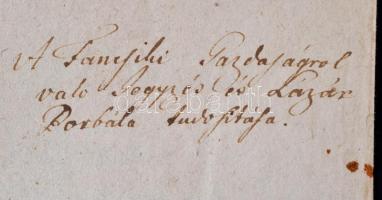 A Fancsiki Gazdaságrol
valo Jegyzés és Lázár
Borbála tudositása.